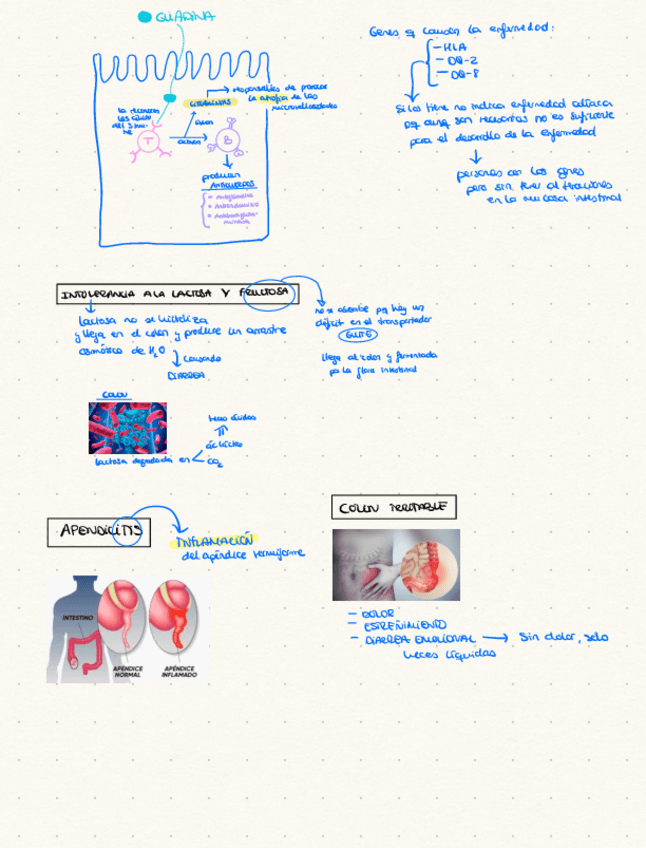 GLIADINA
responsables de producir
la atrofia de las
microvellosidades
CITOQUINAS
la reconocen
las células
del S.inmu-
NE
T
liberan
activan
B
producen
ANTICUERPOS
Genes q causan la enfermedad:
- HLA
- DQ-2
- DQ-8
Si los tiene no indica enfermedad celíaca
pq aunq son necesarios no es suficiente
para el desarrollo de la enfermedad
personas con los genes
pero sin tener alteraciones
en la mucosa intestinal
INTOLERANCIA A LA LACTOSA Y FRUCTOSA
lactosa no se hidroliza
y llega en el colon y produce un arrastre
osmótico de H2O
causando
DIARREA
no se absorbe pq hay un
déficit en el transportador
GLUT5
llega al colon y fermentada
por la flora intestinal
COLON
heces ácidas
ác láctico
lactosa degradada en
CO2
APENDICITIS
INFLAMACIÓN
del apéndice vermiforme
INTESTINO
APÉNDICE
NORMAL
APÉNDICE
INFLAMADO
COLON IRRITABLE
- DOLOR
- ESTREÑIMIENTO
- DIARREA EMOCIONAL → Sin dolor, solo
heces líquidas